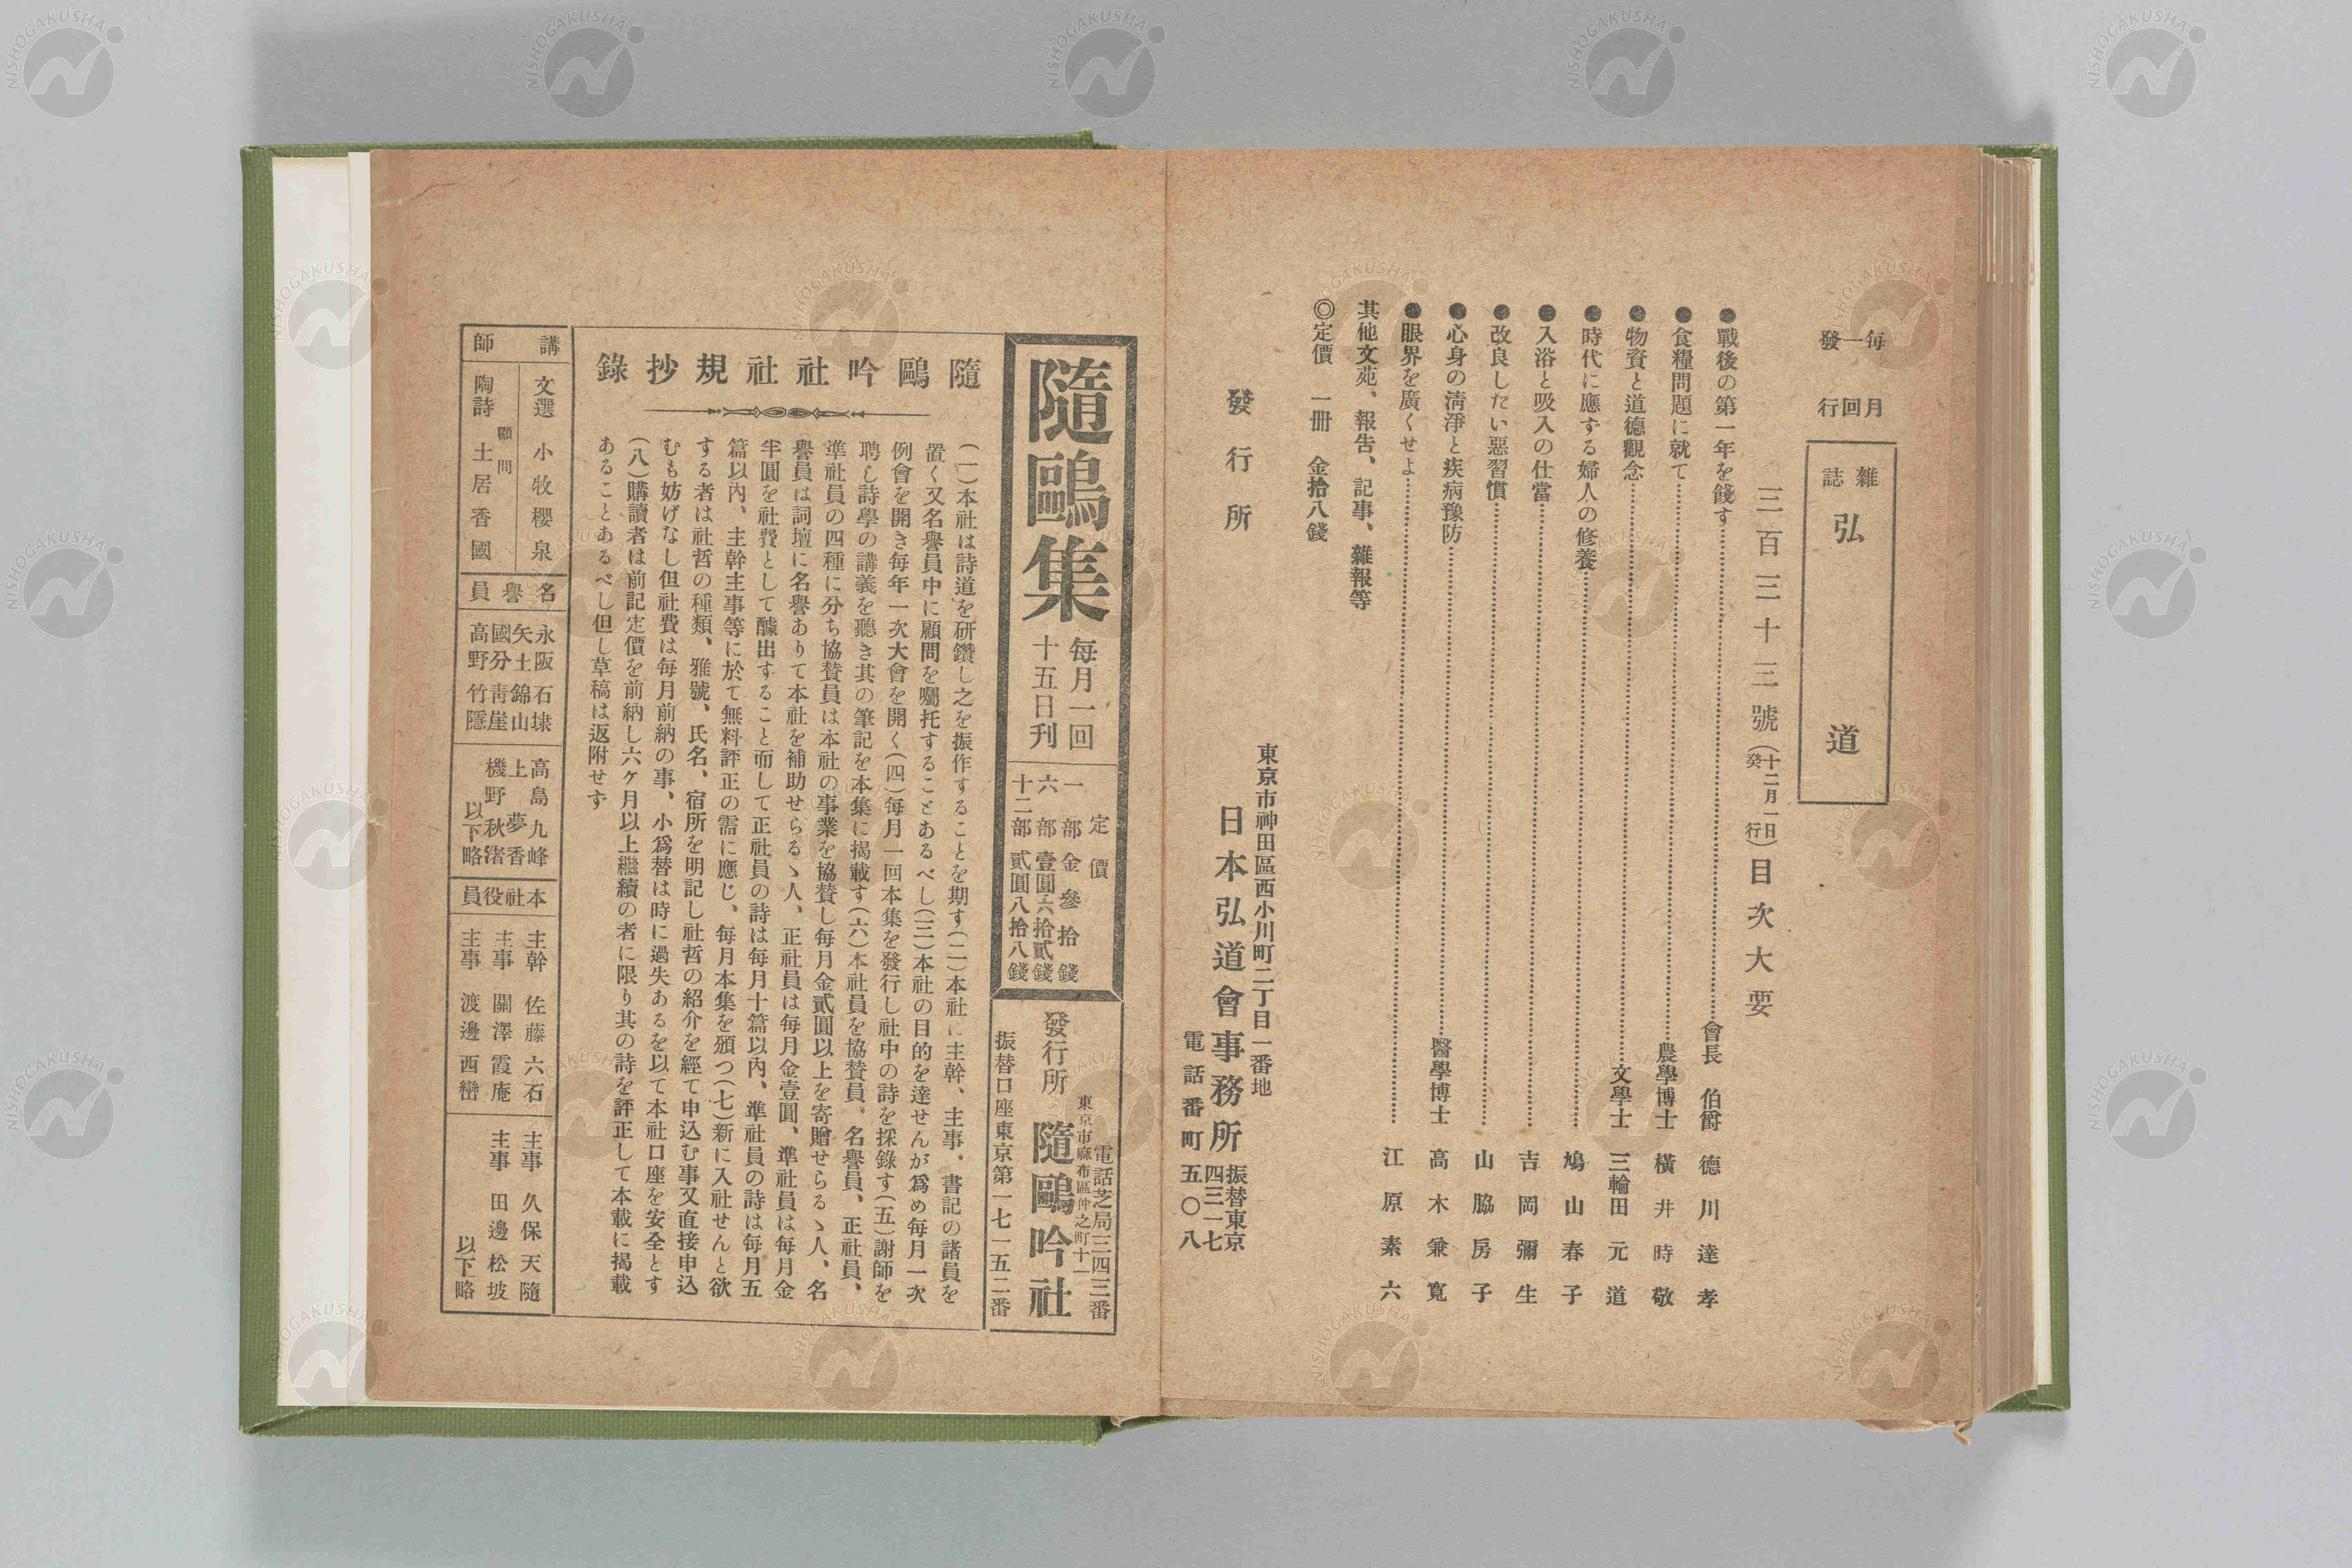 每月
一回
發行
雜誌 弘道
三百三十三號(十二月一日發行)目次大要
●戰後の第一年を餞す……會長 伯爵 德川達孝
●食糧問題に就て……農學博士 橫井時敬
●物資と道德觀念……文學士 三輪田元道
●時代に應ずる婦人の修養……鳩山春子
●入浴と吸入の仕當……吉岡彌生
●改良したい惡習慣……山脇房子
●心身の淸淨と疾病豫防……醫學博士 高木兼寬
●眼界を廣くせよ……江原素六
其他文苑、報告、記事、雜報等
◎定價 一册 金拾八錢
發行所
東京市神田區西小川町二丁目一番地
日本弘道會事務所
振替東京
四三一七
電話番町五〇八
隨鷗集
每月一回
十五日刊
定價
一部金參拾錢
六部壹圓六拾貳錢
十二部貳圓八拾八錢
電話芝局三四三番
東京市麻布區仲之町十一
發行所 隨鷗吟社
振替口座東京第一七一五二番
隨鷗吟社社規抄錄
(一)本社は詩道を硏鑽し之を振作することを期す(二)本社に主幹、主事、書記の諸員を
置く又名譽員中に顧問を囑托することあるべし(三)本社の目的を達せんが爲め每月一次
例會を開き每年一次大會を開く(四)每月一回本集を發行し社中の詩を採錄す(五)謝師を
聘し詩學の講義を聽き其の筆記を本集に揭載す(六)本社員を協贊員、名譽員、正社員、
準社員の四種に分ち協贊員は本社の事業を協贊し每月金貳圓以上を寄贈せらるゝ人、名
譽員は詞壇に名譽ありて本社を補助せらるゝ人、正社員は每月金壹圓、準社員は每月金
半圓を社費として醵出すること而して正社員の詩は每月十篇以內、準社員の詩は每月五
篇以內、主幹主事等に於て無料評正の需に應じ、每月本集を頒つ(七)新に入社せんと欲
する者は社哲の種類、雅號、氏名、宿所を明記し社哲の紹介を經て申込む事又直接申込
むも妨げなし但社費は每月前納の事、小爲替は時に過失あるを以て本社口座を安全とす
(八)購讀者は前記定價を前納し六ヶ月以上繼續の者に限り其の詩を評正して本載に揭載
あることあるべし但し草稿は返附せず
講師
文選 小牧櫻泉
顧問
陶詩 土居香國
名譽員
永阪石埭
矢土錦山
國分靑崖
高野竹隱
高島九峰
上夢香
磯野秋渚
以下略
本社役員
主幹 佐藤六石
主事 關澤霞庵
主事 渡邊西巒
主事 久保天隨
主事 田邊松坡
以下略
NISHOGAKUSHA